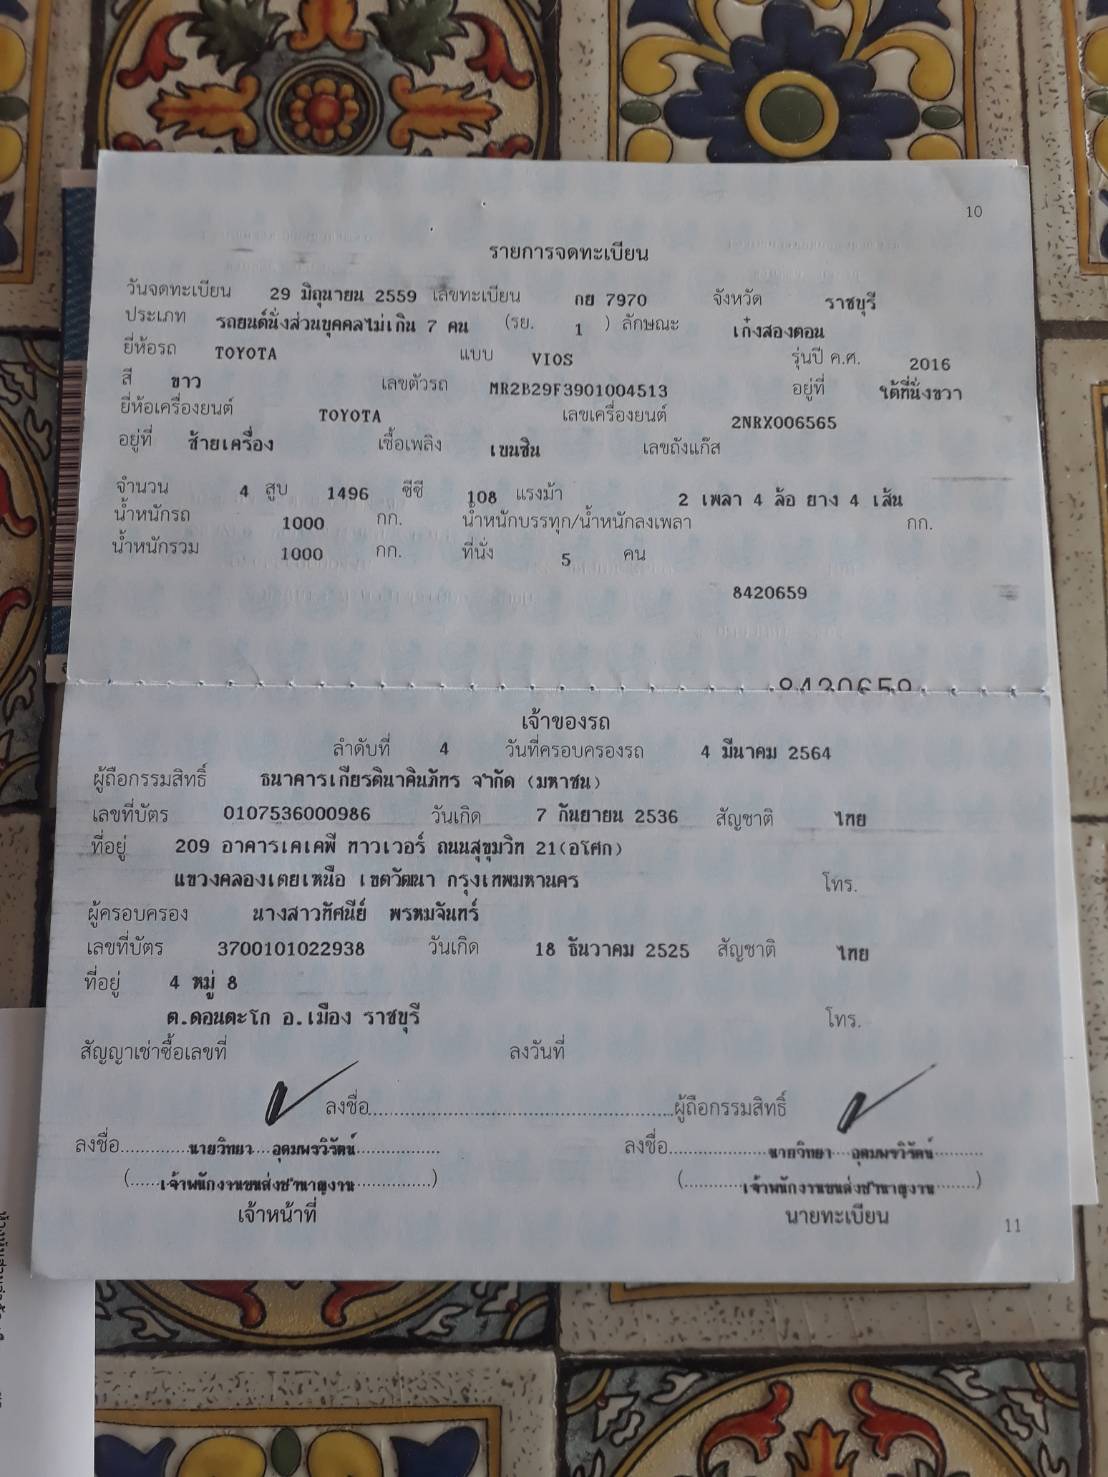 10
รายการจดทะเบียน
วันจดทะเบียน 29 มิถุนายน 2559 เลขทะเบียน กย 7970 จังหวัด ราชบุรี
ประเภท รถยนต์นั่งส่วนบุคคลไม่เกิน 7 คน (รย. 1 ) ลักษณะ เก๋งสองตอน
ยี่ห้อรถ TOYOTA แบบ VIOS รุ่นปี ค.ศ. 2016
สี ขาว เลขตัวรถ MR2B29F3901004513 อยู่ที่ ใต้ที่นั่งขวา
ยี่ห้อเครื่องยนต์ TOYOTA เลขเครื่องยนต์ 2NRX006565
อยู่ที่ ซ้ายเครื่อง เชื้อเพลิง เบนซิน เลขถังแก๊ส
จำนวน 4 สูบ 1496 ซีซี 108 แรงม้า 2 เพลา 4 ล้อ ยาง 4 เส้น
น้ำหนักรถ 1000 กก. น้ำหนักบรรทุก/น้ำหนักลงเพลา กก.
น้ำหนักรวม 1000 กก. ที่นั่ง 5 คน
8420659
8420659
เจ้าของรถ
ลำดับที่ 4 วันที่ครอบครองรถ 4 มีนาคม 2564
ผู้ถือกรรมสิทธิ์ ธนาคารเกียรตินาคินภัทร จำกัด (มหาชน)
เลขที่บัตร 0107536000986 วันเกิด 7 กันยายน 2536 สัญชาติ ไทย
ที่อยู่ 209 อาคารเคเคพี ทาวเวอร์ ถนนสุขุมวิท 21(อโศก)
แขวงคลองเตยเหนือ เขตวัฒนา กรุงเทพมหานคร โทร.
ผู้ครอบครอง นางสาวทัศนีย์ พรหมจันทร์
เลขที่บัตร 3700101022938 วันเกิด 18 ธันวาคม 2525 สัญชาติ ไทย
ที่อยู่ 4 หมู่ 8
ต.ดอนตะโก อ.เมือง ราชบุรี โทร.
สัญญาเช่าซื้อเลขที่ ลงวันที่
ลงชื่อ..........ผู้ถือกรรมสิทธิ์
ลงชื่อ.....นายวิทยา อุดมพรวิรัตน์..... ลงชื่อ.....นายวิทยา อุดมพรวิรัตน์.....
(.....เจ้าพนักงานขนส่งชำนาญงาน.....) (.....เจ้าพนักงานขนส่งชำนาญงาน.....)
เจ้าหน้าที่ นายทะเบียน
11